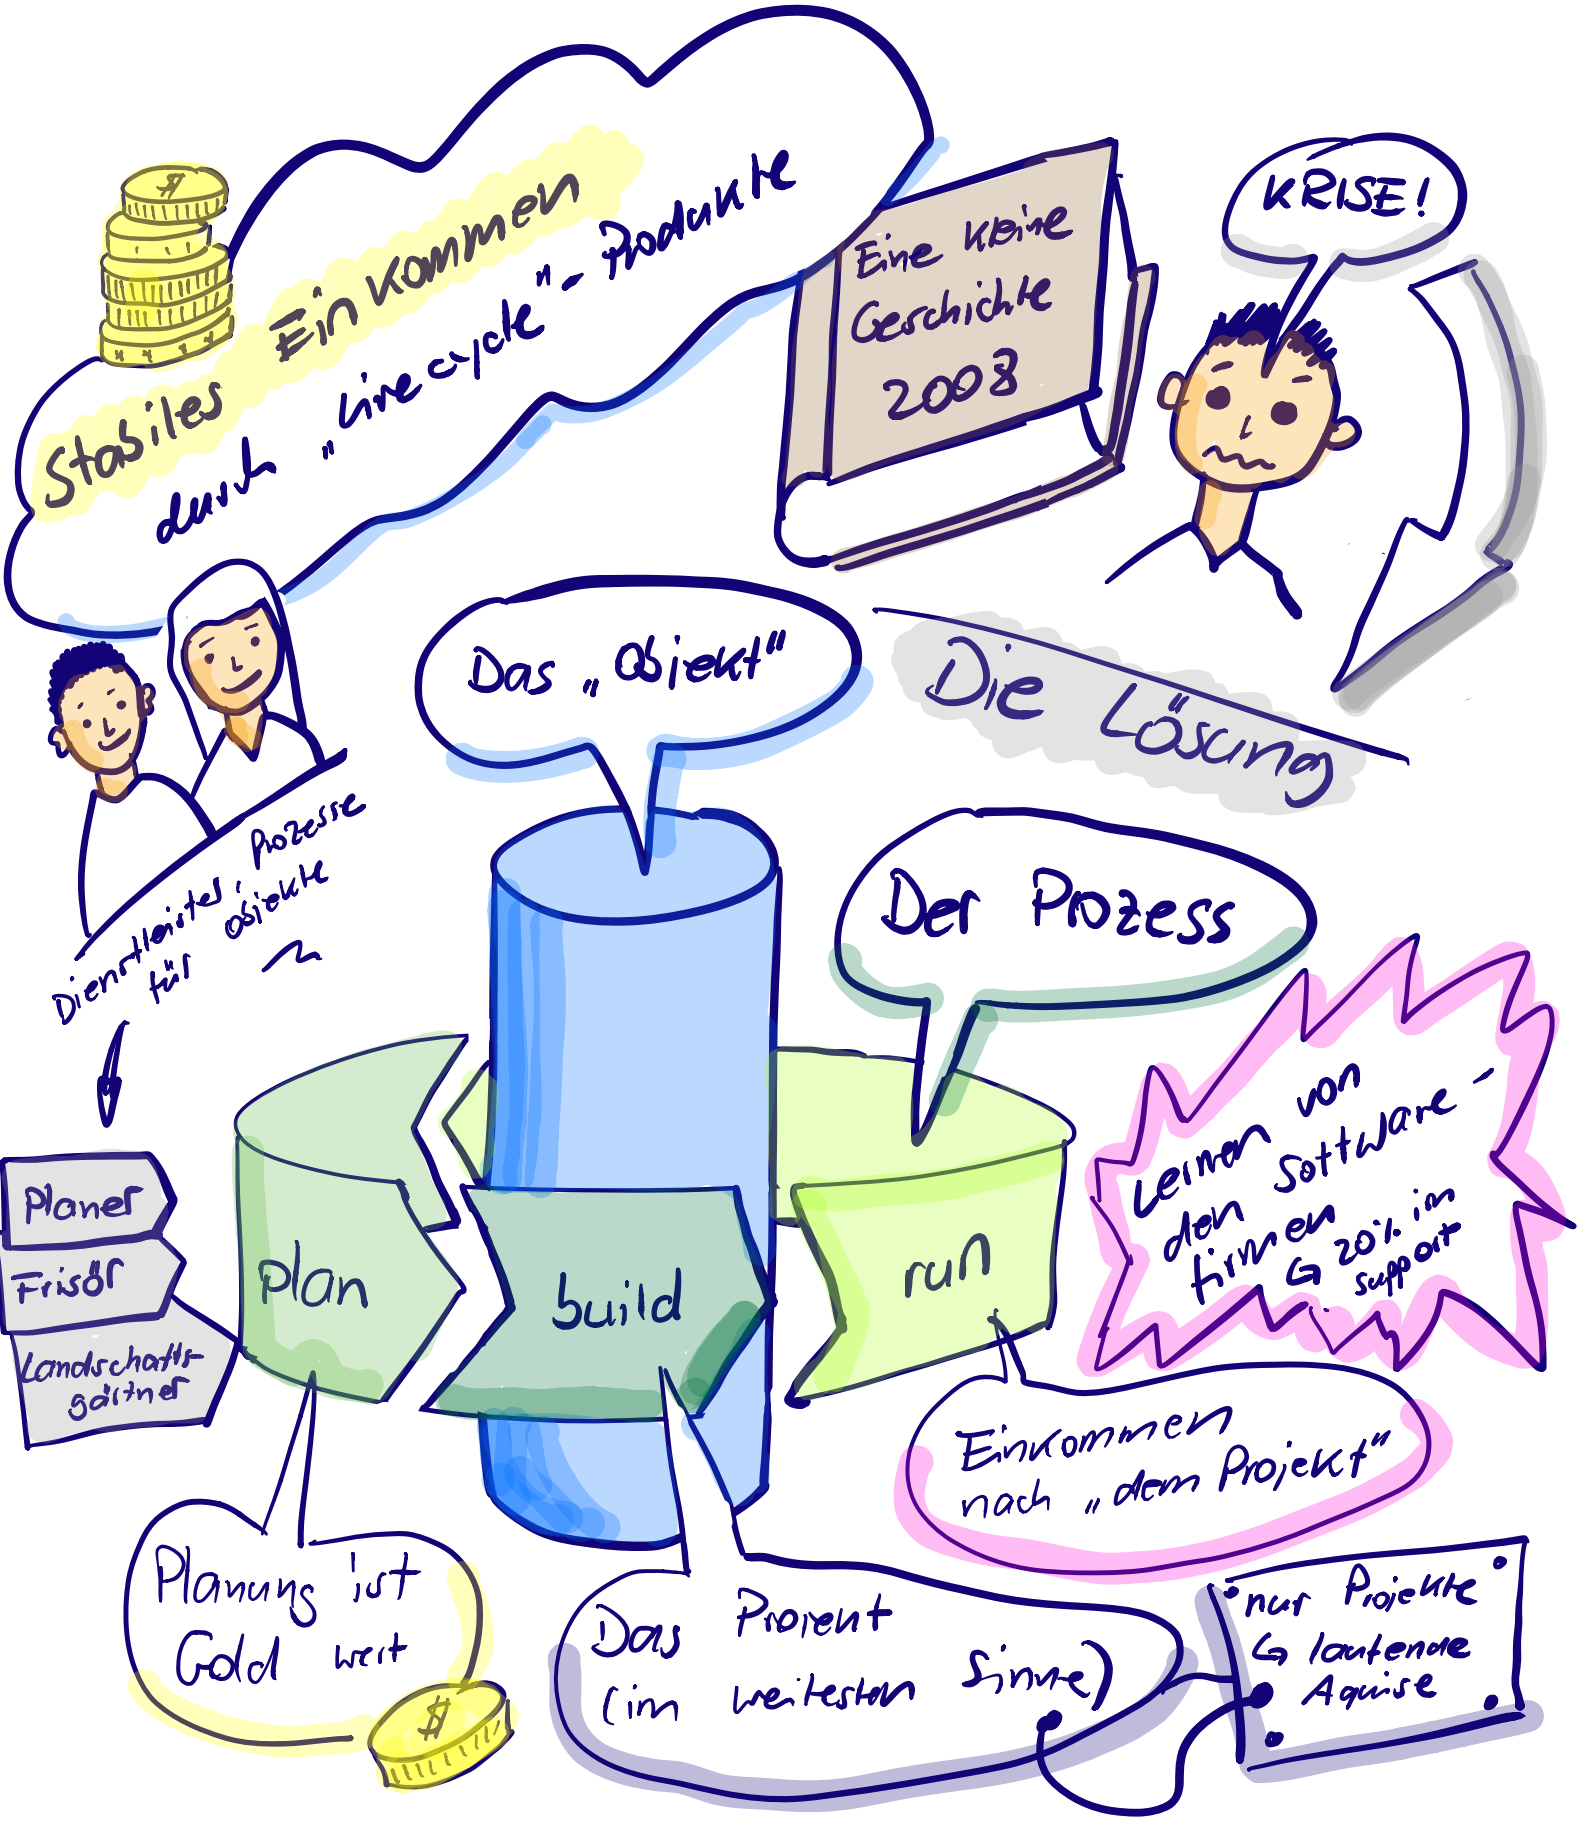 Stabiles Einkommen
durch „Livecycle"-Produkte
Eine kleine
Geschichte
2008
KRISE!
Das „Objekt"
Die Lösung
Dienstleister, Prozesse
für Objekte
Der Prozess
Planer
Frisör
Landschafts-
gärtner
plan
build
run
Lernen von
den Software-
firmen
↳ 20% im
support
Einkommen
nach „dem Projekt"
Planung ist
Gold wert
Das Projekt
(im weitesten Sinne)
nur Projekte
↳ laufende
Aquise
$
$